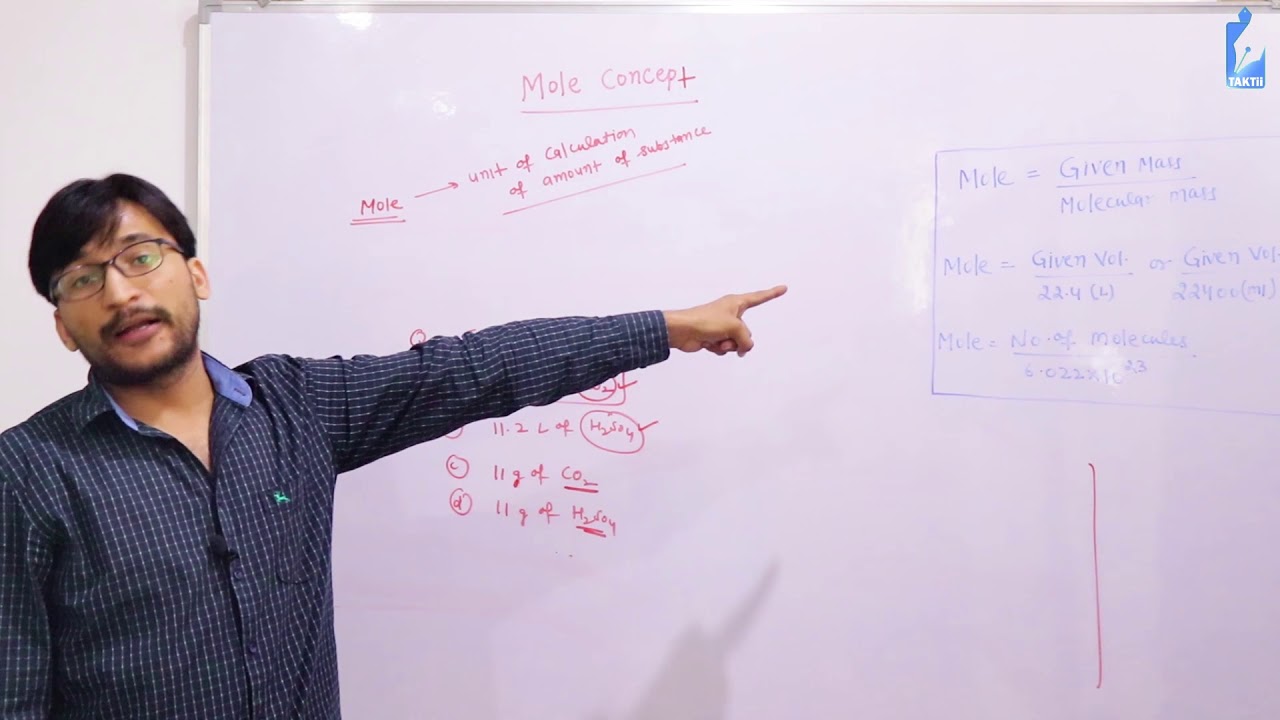 TAKTii
Mole Concept
Mole → unit of calculation
of amount of substance
11.2 L of H₂SO₄
(c) 11 g of CO₂
(d) 11 g of H₂SO₄
Mole = Given Mass
Molecular mass
Mole = Given Vol. or Given Vol.
22.4 (L) 22400 (ml)
Mole = No. of molecules.
6.022×10²³